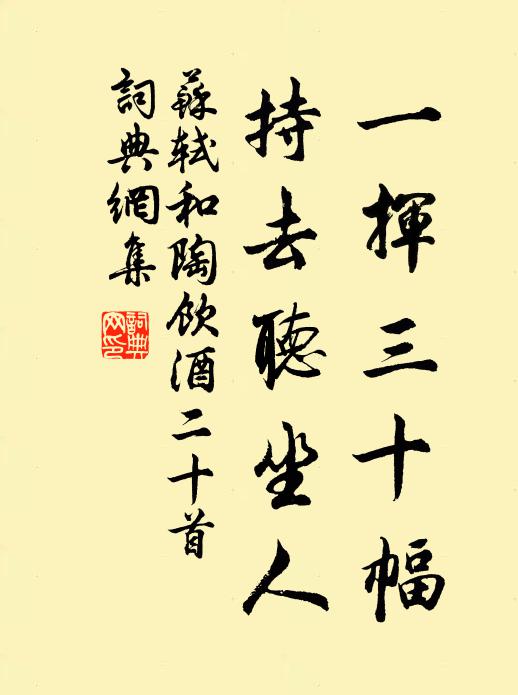 一揮三十幅
持去聽坐人
蘇軾和陶飲酒二十首
詞典網集
詞典网印